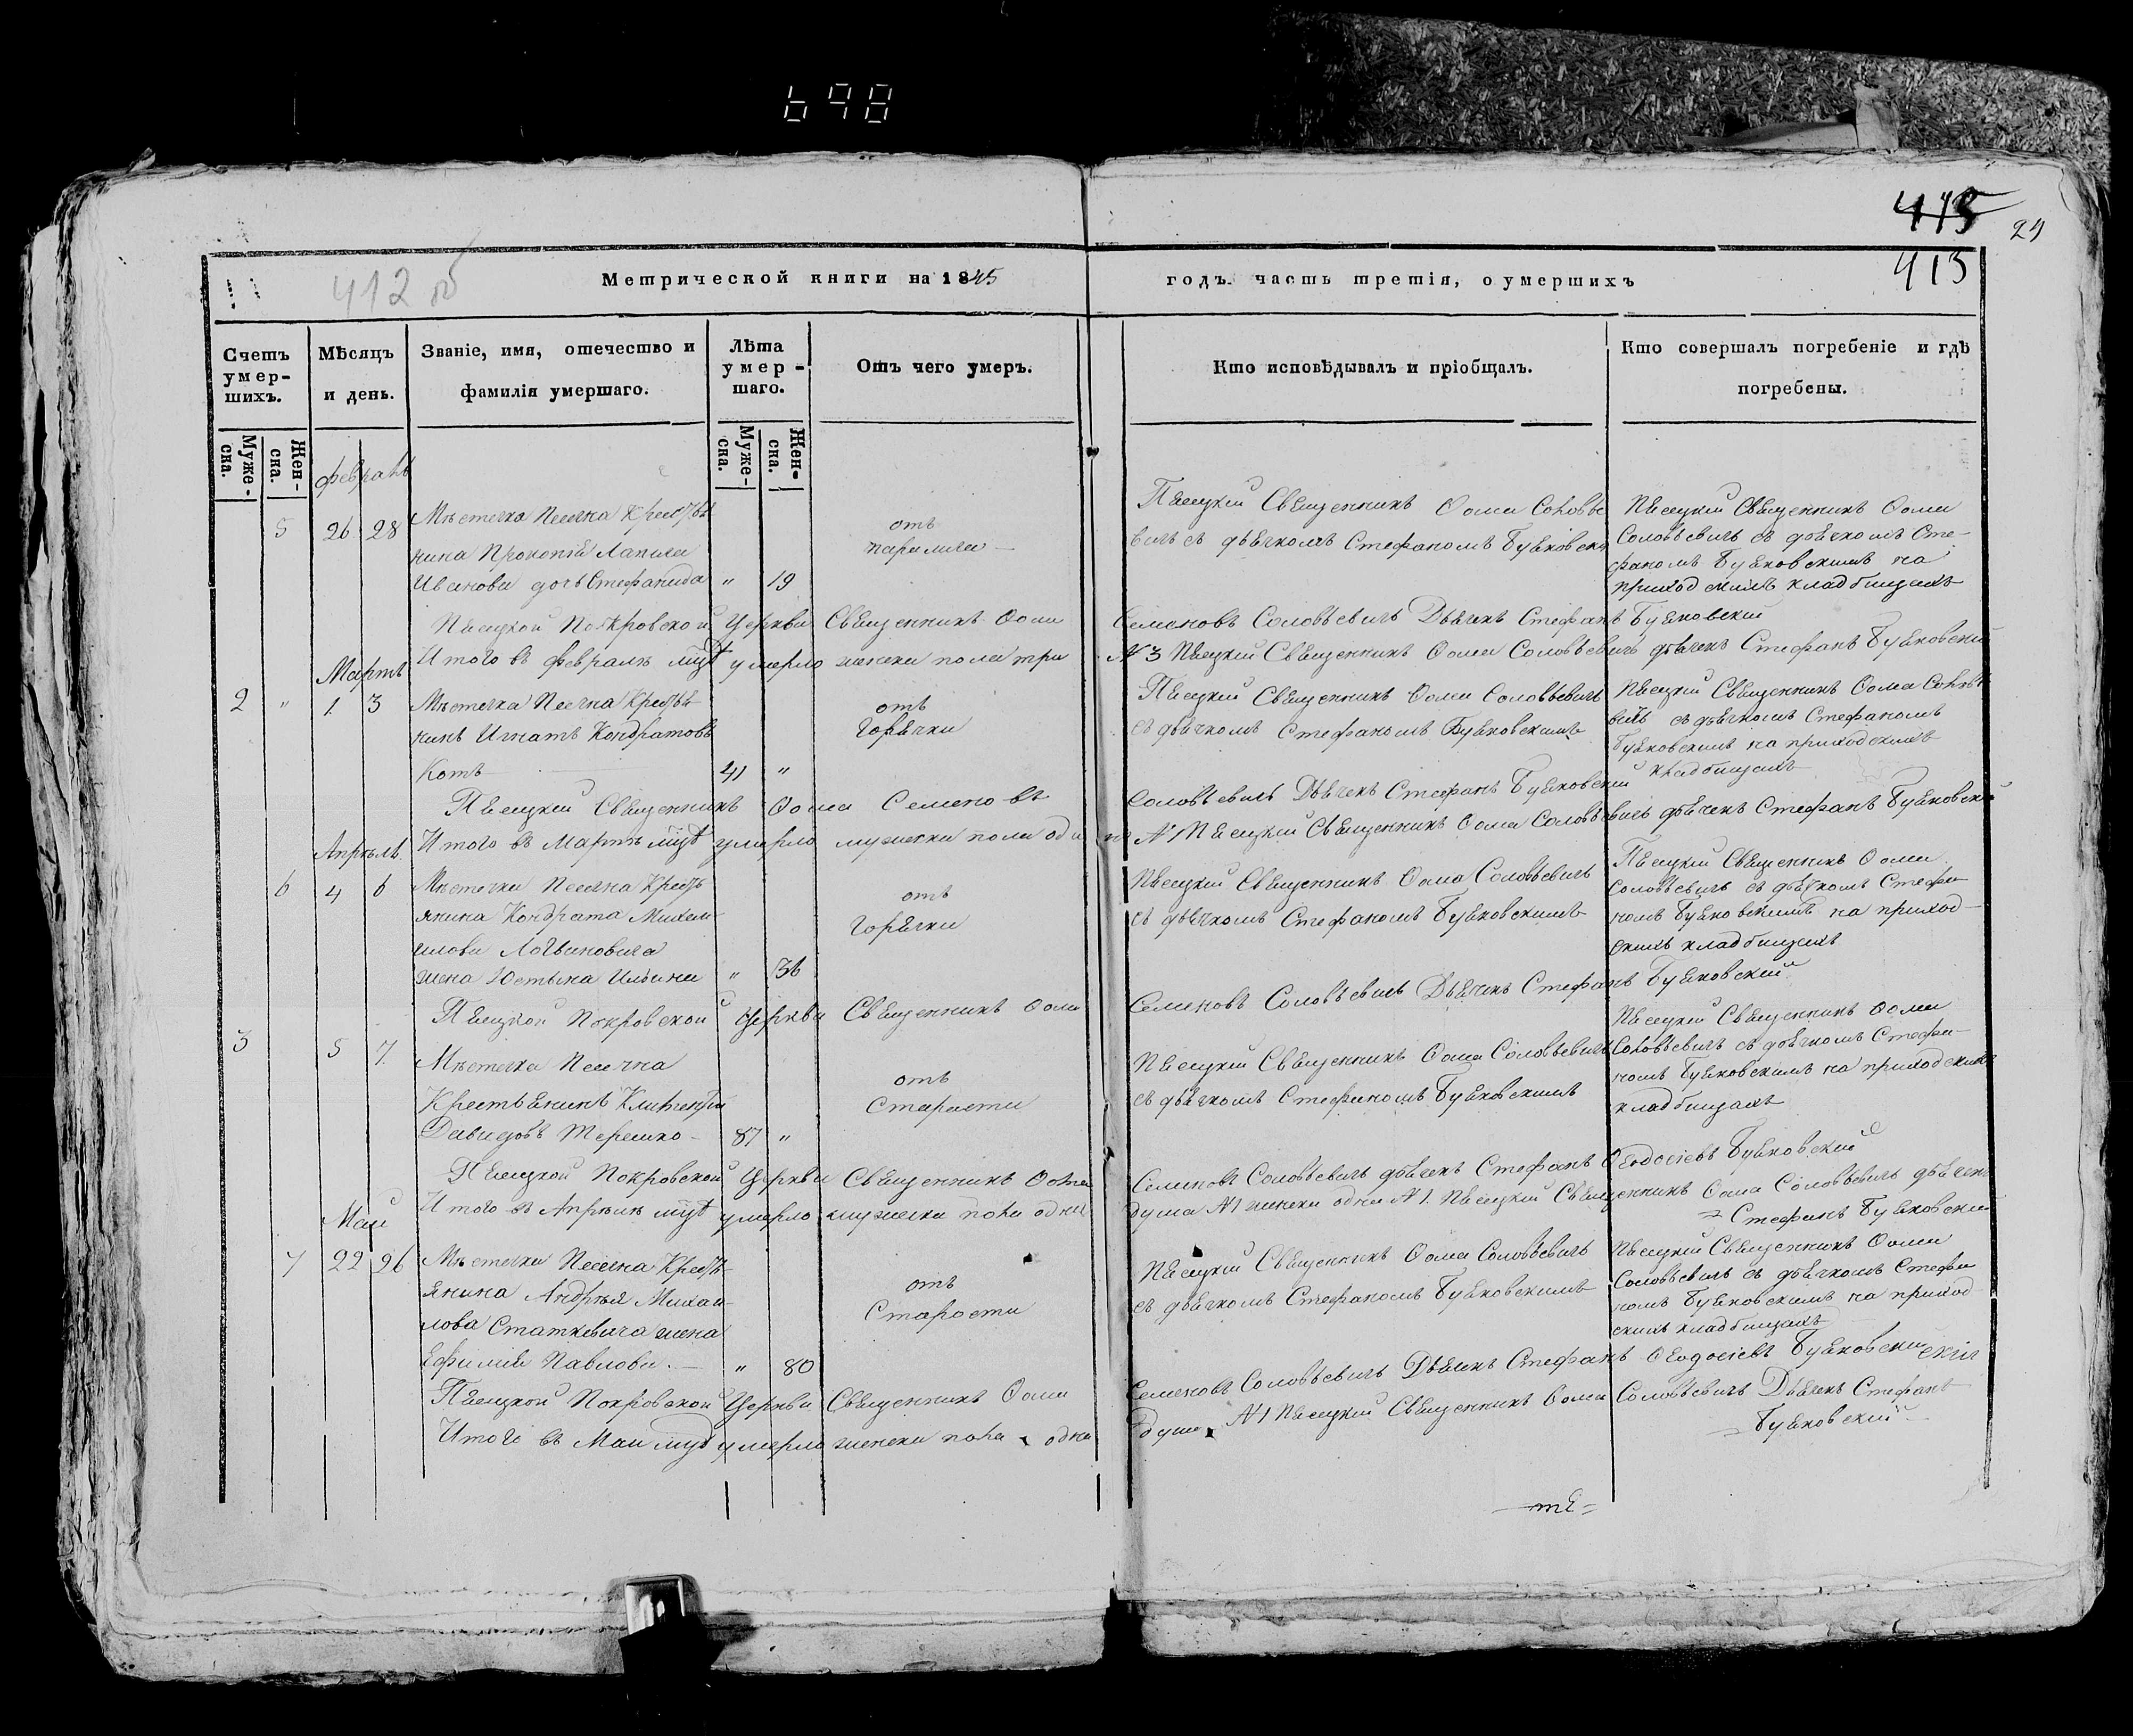 698
415
29
415
412 об
Метрической книги на 1845
годъ. часть третія, о умершихъ
Счетъ умер-шихъ.
Мѣсяцъ и день.
Званіе, имя, отечество и фамилія умершаго.
Лѣта умер-шаго.
Отъ чего умеръ.
Кто исповѣдывалъ и пріобщалъ.
Кто совершалъ погребеніе и гдѣ погребены.
Муже-ска.
Жен-ска.
Муже-ска.
Жен-ска.
февраль
5 26 28
Мѣстечка Песечна Крестья
нина Прокопія Лапича
Иванова дочь Стефанида " 19
отъ
паралича
Пѣсецкій Священникъ Ѳома Соловье
вичь съ дьячкомъ Стефаномъ Буяковски
Пѣсецкій Священникъ Ѳома
Соловьевичь съ дьячкомъ Сте-
фаномъ Буяковскимъ на
приходскихъ кладбищахъ
Пѣсецкой Покровской Церкви Священникъ Ѳома Семеновъ Соловьевичь Дьячекъ Стефанъ Буяковскій
Итого въ февралѣ умерло женска пола три № 3 Пѣсецкій Священникъ Ѳома Соловьевичь дьячекъ Стефанъ Буяковскій
Мартъ
2 " 1 3
Мѣстечка Песечна Крестья-
нинъ Игнатъ Кондратовъ
Котъ 41 "
отъ
Горячки
Пѣсецкій Священникъ Ѳома Соловьевичь
съ дьячкомъ Стефаномъ Буяковскимъ
Пѣсецкій Священникъ Ѳома Соловье
вичь съ дьячкомъ Стефаномъ
Буяковскимъ на приходскихъ
кладбищахъ
Пѣсецкій Священникъ Ѳома Семеновъ Соловьевичь Дьячекъ Стефанъ Буяковскій
Итого въ Мартѣ умерло мужска пола один № 1 Пѣсецкій Священникъ Ѳома Соловьевичь дьячекъ Стефанъ Буяковскій
Апрѣль
6 4 6
Мѣстечка Песечна Кресть
янина Кондрата Михаи
илова Логвиновича
жена Юстына Ильина " 36
отъ
Горячки
Пѣсецкій Священникъ Ѳома Соловьевичь
съ дьячкомъ Стефаномъ Буяковскимъ
Пѣсецкій Священникъ Ѳома
Соловьевичь съ дьячкомъ Стефа
номъ Буяковскимъ на приход-
скихъ кладбищахъ
Пѣсецкой Покровской Церкви Священникъ Ѳома Семеновъ Соловьевичь Дьячекъ Стефанъ Буяковскій
3 5 7
Мѣстечка Песечна
Крестьянинъ Климентій
Давидовъ Терешко 87 "
отъ
Старости
Пѣсецкій Священникъ Ѳома Соловьевичь
съ дьячкомъ Стефаномъ Буяковскимъ
Пѣсецкій Священникъ Ѳома
Соловьевичь съ дьячкомъ Стефа-
номъ Буяковскимъ на приходскихъ
кладбищахъ
Пѣсецкой Покровской Церкви Священникъ Ѳома Семеновъ Соловьевичь дьячекъ Стефанъ Ѳеодосіевъ Буяковскій
Итого въ Апрѣлѣ умерло мужска пола одна душа № 1 женска одна № 1. Пѣсецкій Священникъ Ѳома Соловьевичь дьячекъ
Стефанъ Буяковскій
Май
7 22 26
Мѣстечка Песечна Кресть-
янина Андрея Михаи-
лова Статкевича жена
Ефимія Павлова " 80
отъ
Старости
Пѣсецкій Священникъ Ѳома Соловьевичь
съ дьячкомъ Стефаномъ Буяковскимъ
Пѣсецкій Священникъ Ѳома
Соловьевичь съ дьячкомъ Стефа
номъ Буяковскимъ на приход
скихъ кладбищахъ
Пѣсецкой Покровской Церкви Священникъ Ѳома Семеновъ Соловьевичь Дьячекъ Стефанъ Ѳеодосіевъ Буяковскій
Итого въ Маи умерло женска пола одна душа № 1 Пѣсецкій Священникъ Ѳома Соловьевичь Дьячекъ Стефанъ
Буяковскій